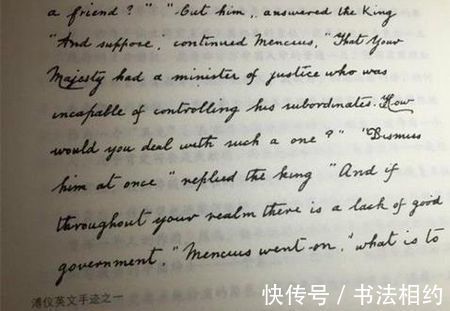 a friend?" "Cut him", answered the King
"And suppose", continued Mencius, "That Your
Majesty had a minister of justice who was
incapable of controlling his subordinates. How
would you deal with such a one?" "Dismiss
him at once" replied the king "And if
throughout your realm there is a lack of good
government," Mencius went on, "what is to
溥仪英文手迹之一
快传号/书法相约